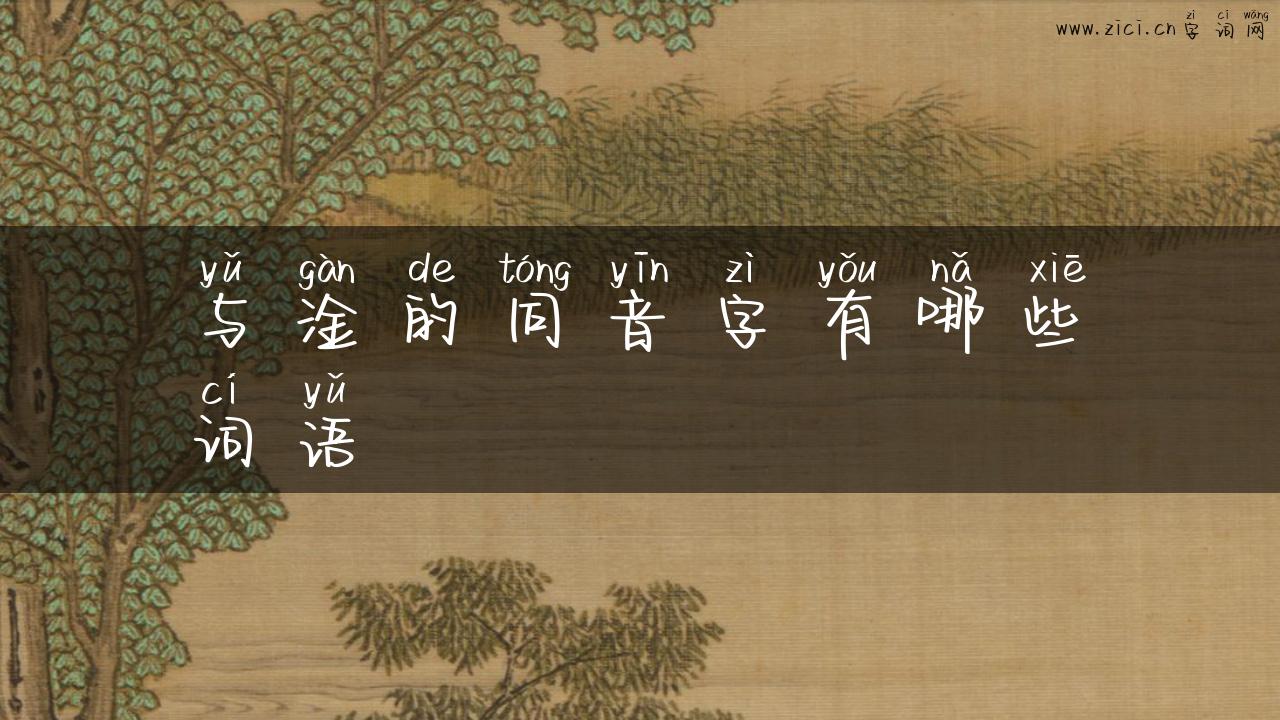 zì cí wǎng
www.zici.cn 字词网
yǔ gàn de tóng yīn zì yǒu nǎ xiē
与淦的同音字有哪些
cí yǔ
词语